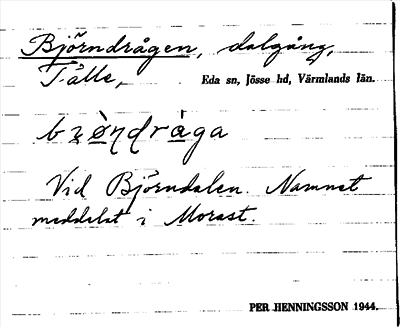 Björndrågen, dalgång,
Tålle, Eda sn, Jösse hd, Värmlands län.
Vid Björndalen. Namnet
meddelat i Morast.
PER HENNINGSSON 1944.